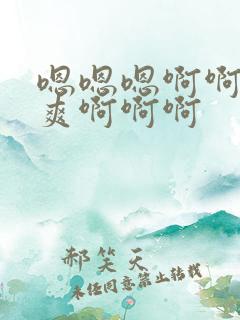 嗯嗯嗯啊啊
爽啊啊啊
郝笑天
未经同意禁止转载